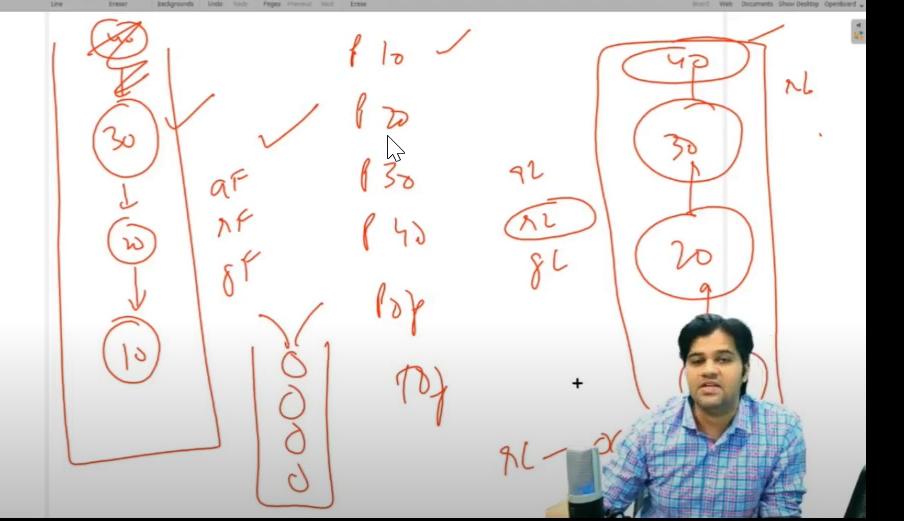 Line Eraser Backgrounds Undo Redo Pages Previous Next Erase Board Web Documents Show Desktop OpenBoard
40
30
20
10
aF
rF
gF
P 10
P 20
P 30
P 40
Pop
Top
aL
rL
gL
40
30
20
rL
rL —